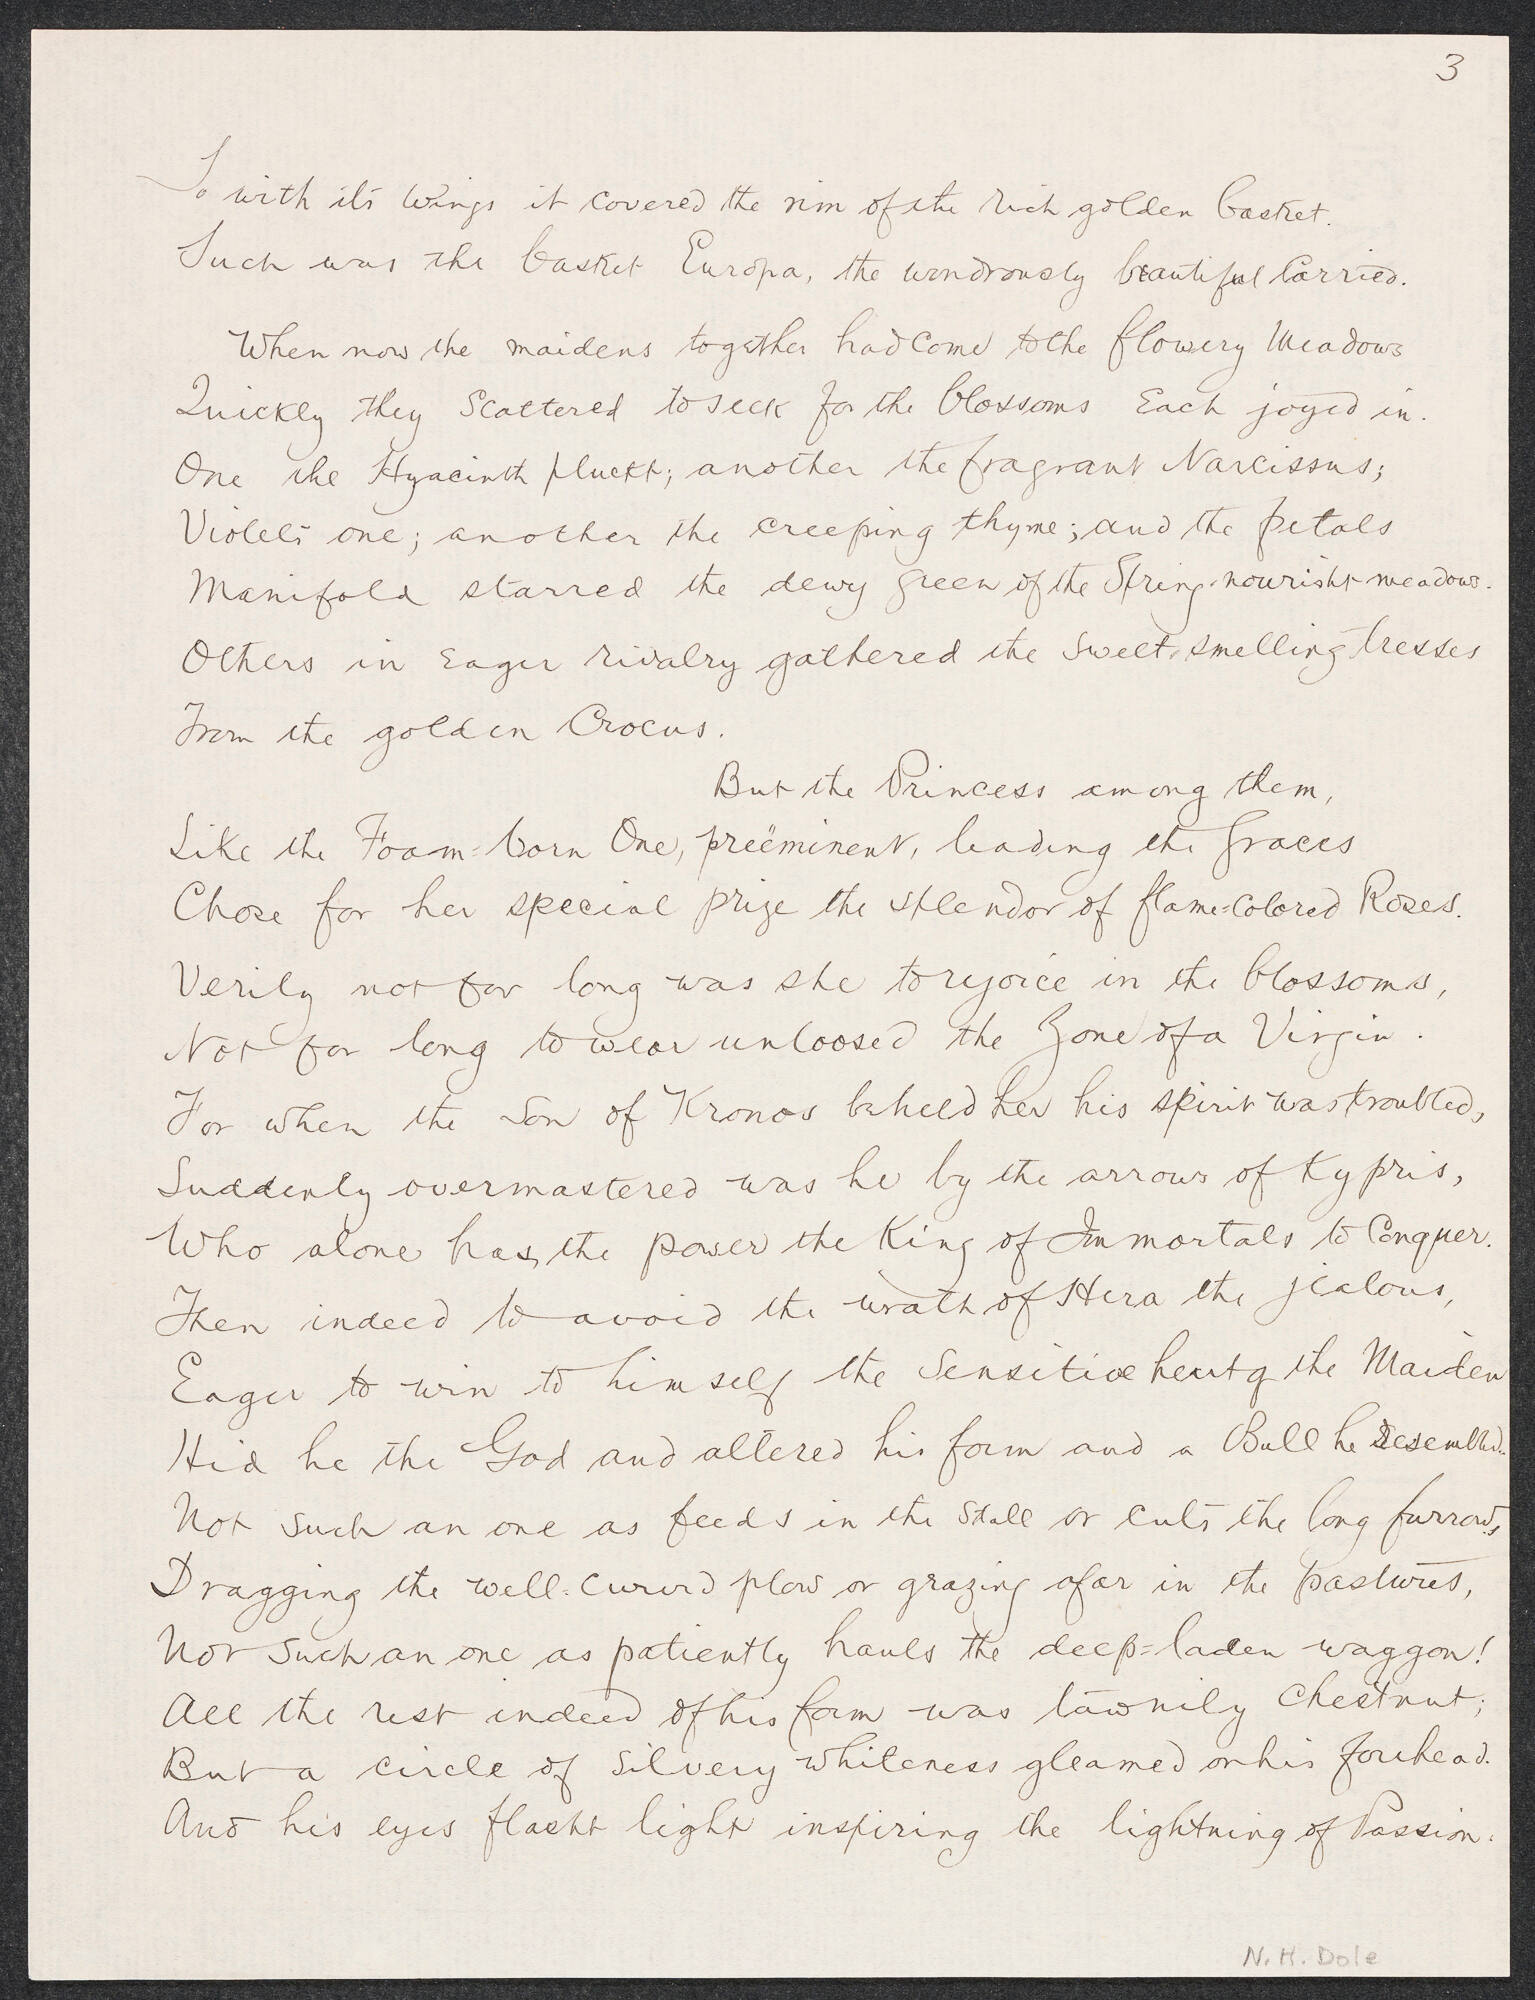 3
So with its wings it covered the rim of the rich golden basket.
Such was the basket Europa, the wondrously beautiful carried.
When now the maidens together had come to the flowery Meadows
Quickly they scattered to seek for the blossoms each joyed in.
One the Hyacinth pluckt; another the fragrant Narcissus;
Violets one; another the creeping thyme; and the petals
Manifold starred the dewy green of the Spring-nourisht meadows.
Others in eager rivalry gathered the sweet-smelling tresses
From the golden Crocus.
But the Princess among them,
Like the Foam=born One, preëminent, leading the Graces
Chose for her special prize the splendor of flame=colored Roses.
Verily not for long was she to rejoice in the blossoms,
Not for long to wear unloosed the Zone of a Virgin.
For when the Son of Kronos beheld her his spirit was troubled,
Suddenly overmastered was he by the arrows of Kypris,
Who alone has the power the King of Immortals to Conquer.
Then indeed to avoid the wrath of Hera the jealous,
Eager to win to himself the sensitive heart of the Maiden
Hid he the God and altered his form and a Bull he resembled.
Not such an one as feeds in the stall or cuts the long furrows,
Dragging the well-curved plow or grazing afar in the pastures,
Nor such an one as patiently hauls the deep=laden waggon!
All the rest indeed of his form was tawnily chestnut;
But a circle of silvery whiteness gleamed on his forehead.
And his eyes flasht light inspiring the lightning of Passion.
N. H. Dole